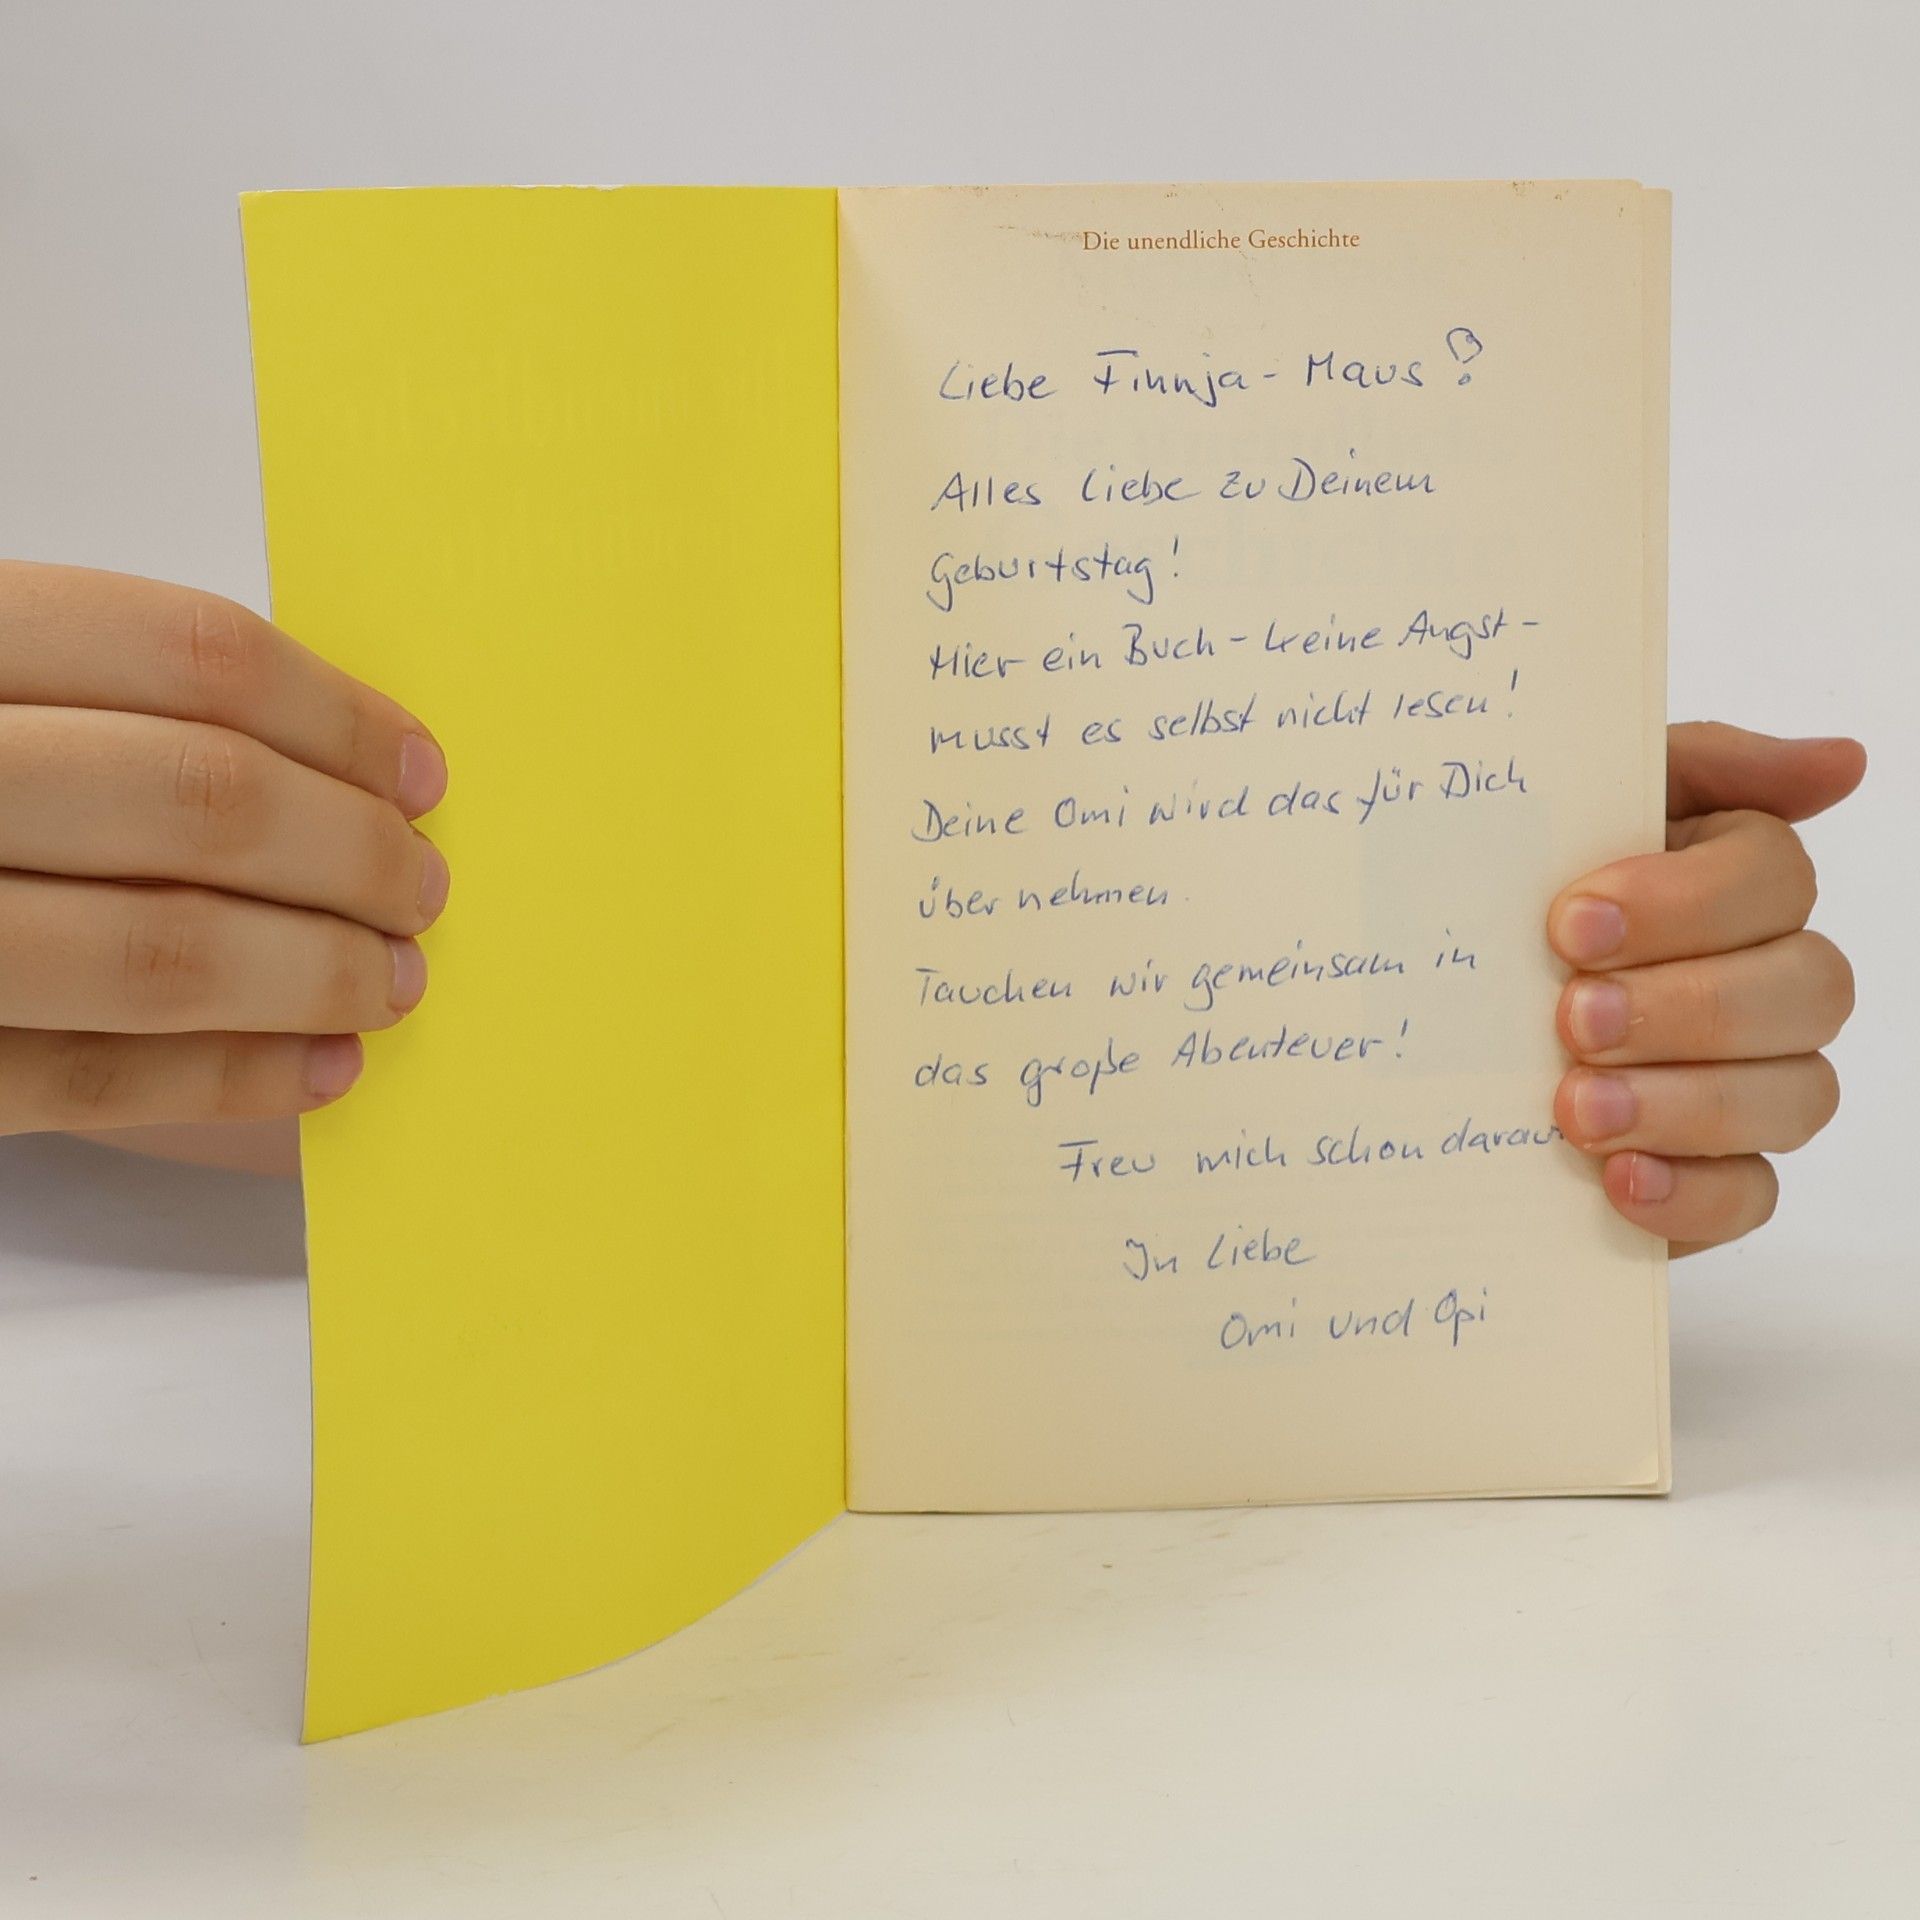 Die unendliche Geschichte
Liebe Finnja - Maus!
Alles Liebe zu Deinem
Geburtstag!
Hier ein Buch - keine Angst -
musst es selbst nicht lesen!
Deine Omi wird das für Dich
übernehmen.
Tauchen wir gemeinsam in
das große Abenteuer!
Freu mich schon
In Liebe
Omi und Opi